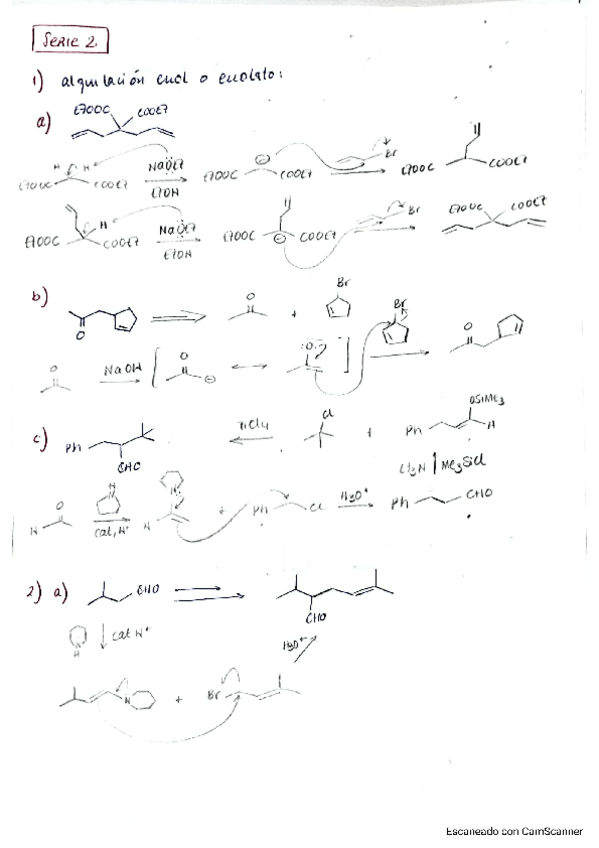 SERIE 2
1) alquilación enol o enolato:
a) EtOOC COOEt
H H NaOEt Br
EtOOC COOEt EtOH EtOOC COOEt EtOOC COOEt
H NaOEt Br EtOOC COOEt
EtOOC COOEt EtOH EtOOC COOEt
b) O Br
O + Br
O NaOH O O O
c) Ph CHO TiCl4 Cl + Ph OSiMe3 H
Et3N Me3SiCl
H O N H cat, H+ N H + Ph Cl H3O+ Ph CHO
2) a) CHO CHO
N H cat H+ H3O+
N + Br
Escaneado con CamScanner